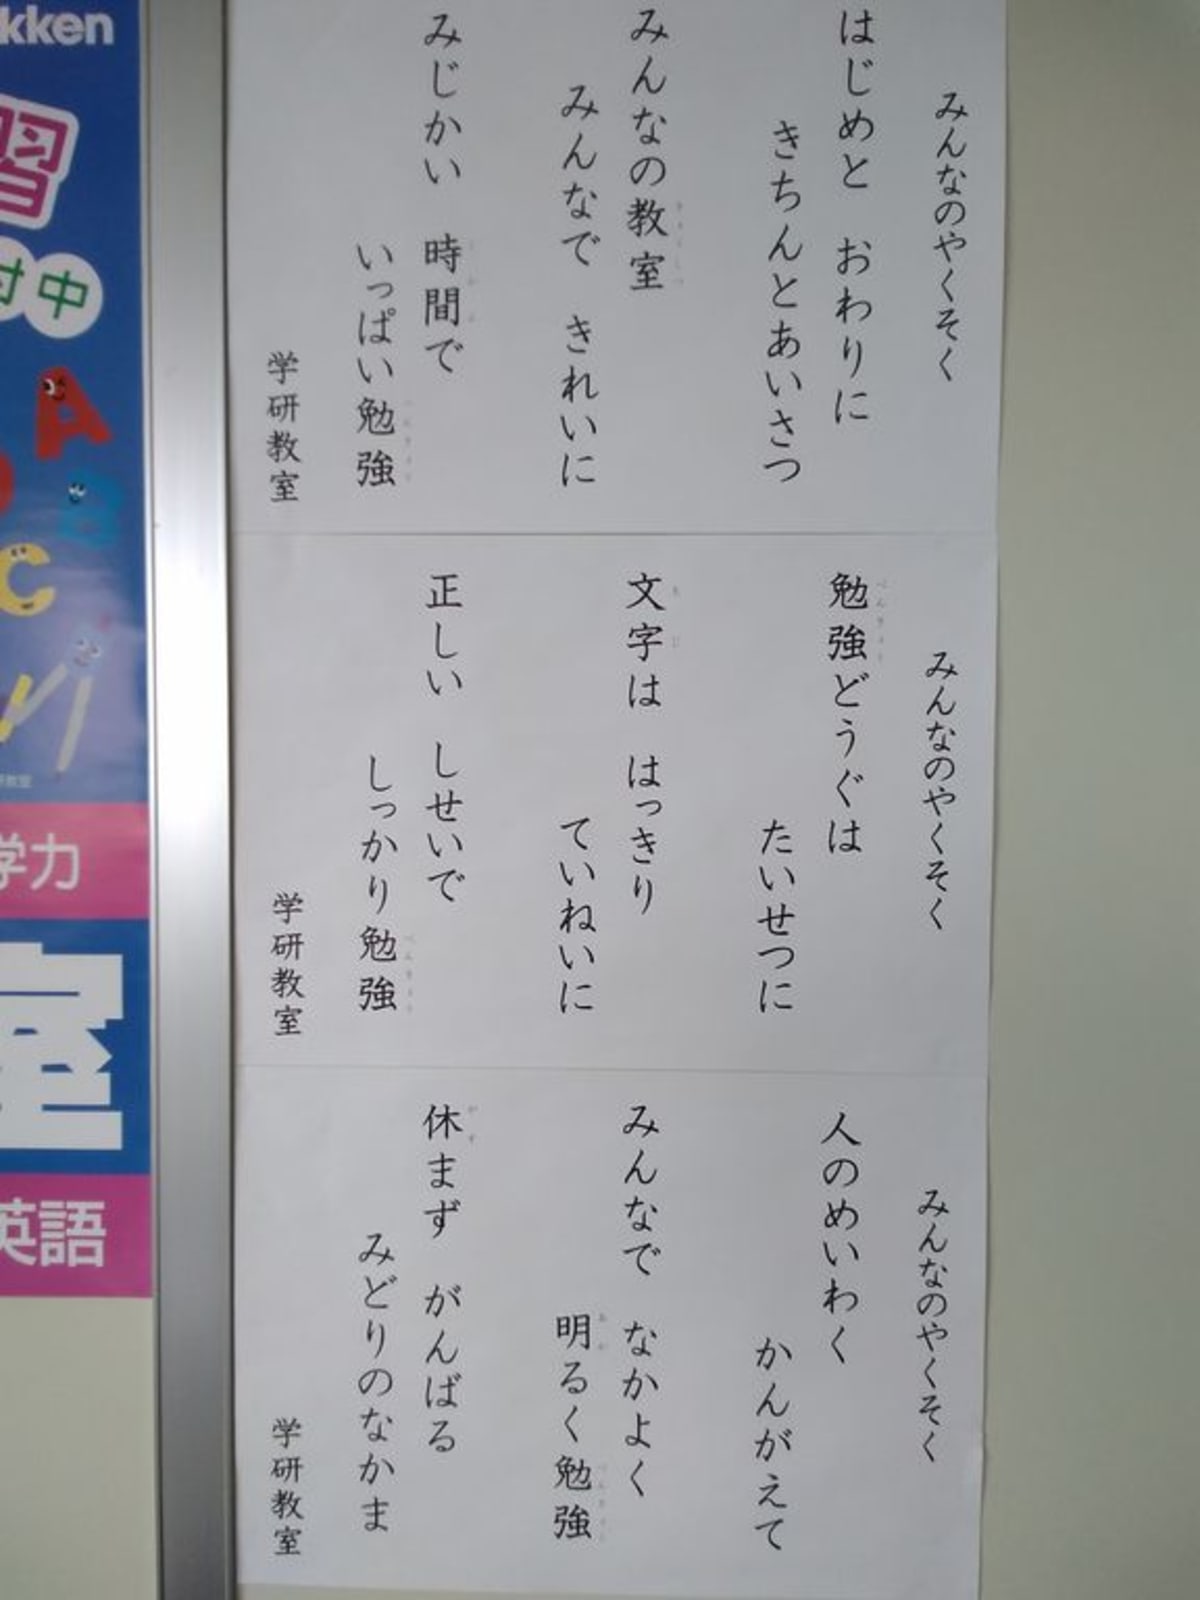 みんなのやくそく
はじめと おわりに
きちんとあいさつ
みんなの教室
みんなで きれいに
みじかい 時間で
いっぱい勉強
学研教室
みんなのやくそく
勉強どうぐは
たいせつに
文字は はっきり
ていねいに
正しい しせいで
しっかり勉強
学研教室
みんなのやくそく
人のめいわく
かんがえて
みんなで なかよく
明るく勉強
休まず がんばる
みどりのなかま
学研教室
kken
習
付中
A
B
C
学力
室
英語